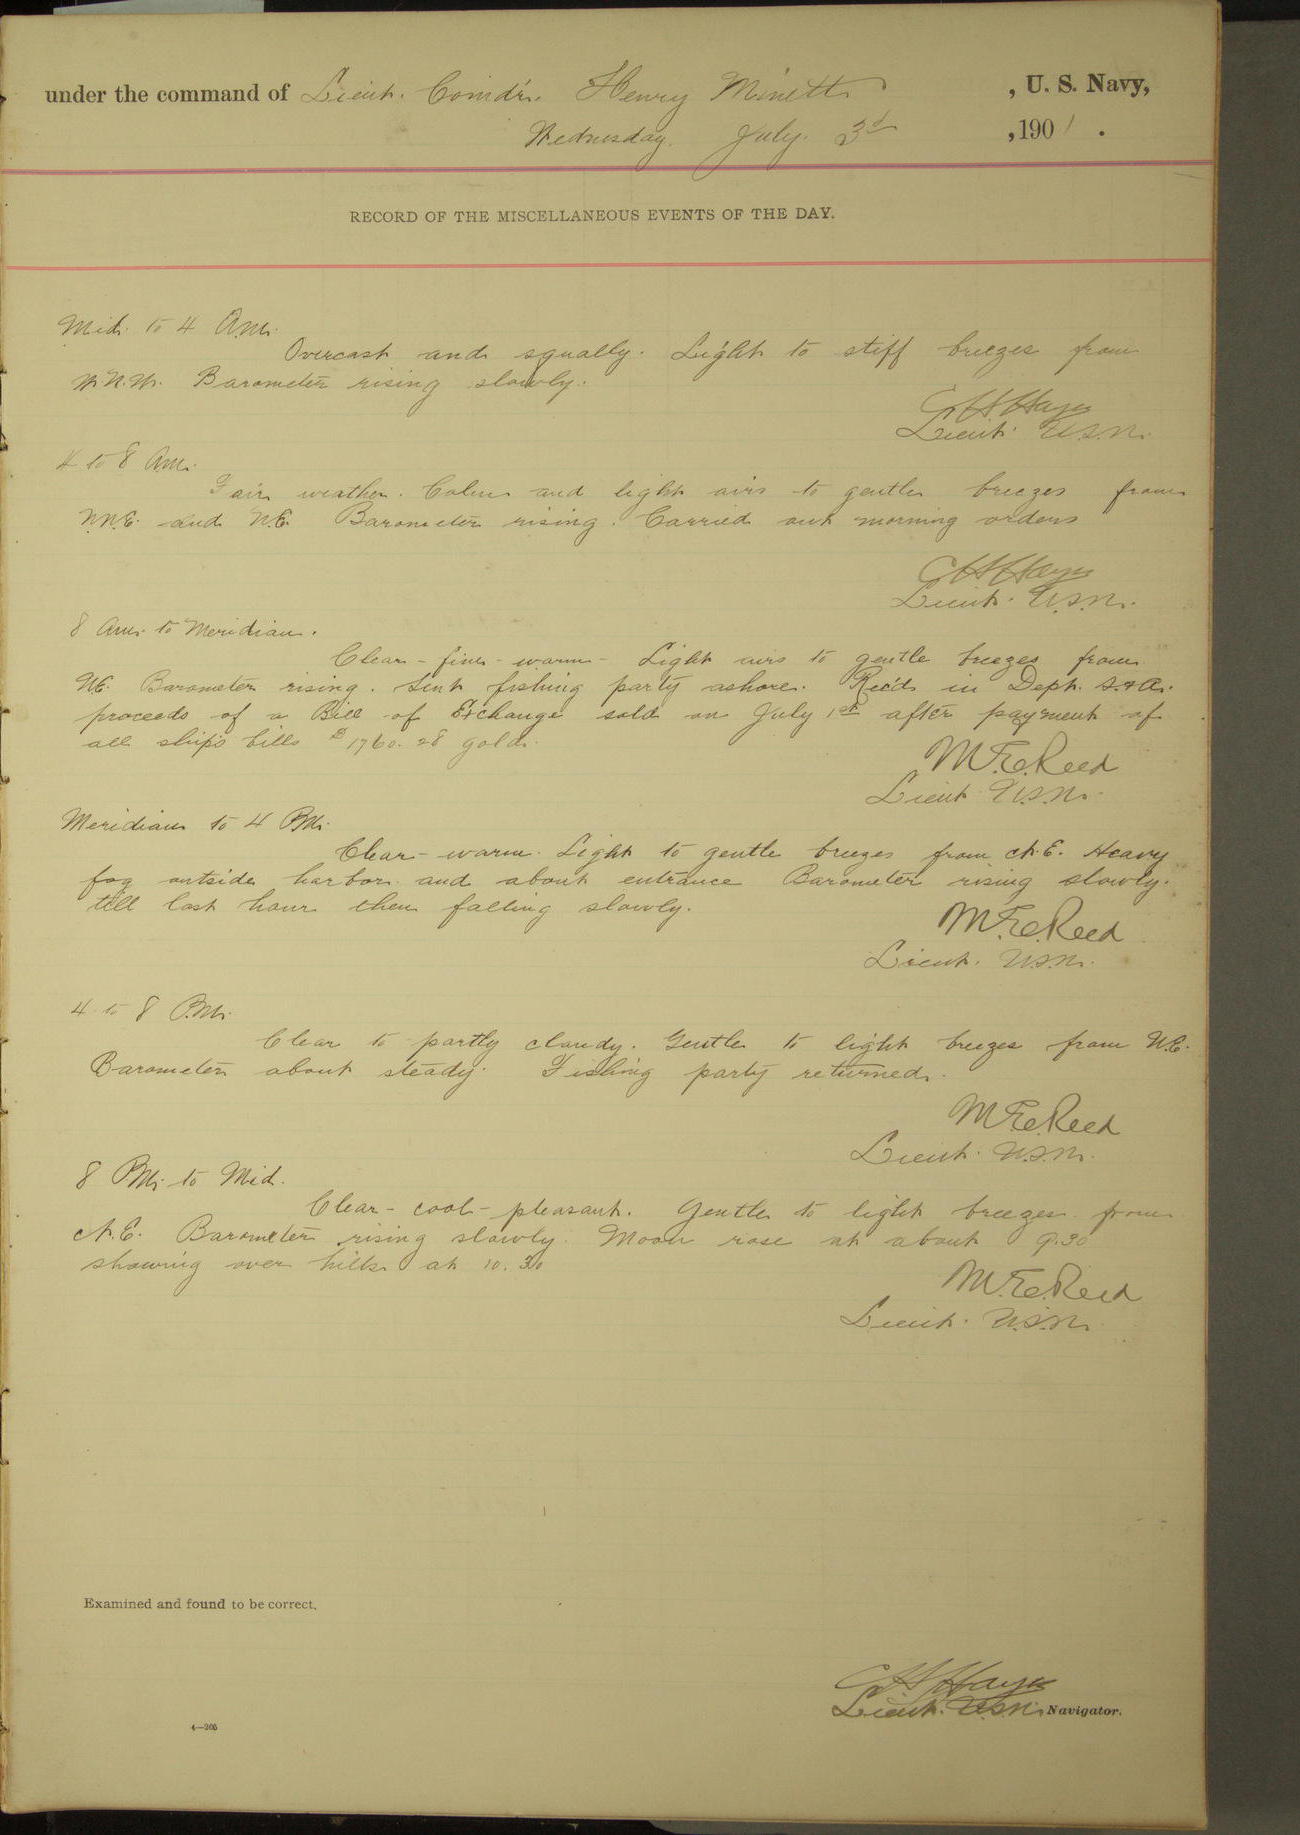 under the command of Lieut. Comdr. Henry Minett , U. S. Navy,
Wednesday. July. 3d , 1901 .
RECORD OF THE MISCELLANEOUS EVENTS OF THE DAY.
Mid. to 4 A.M.
Overcast and squally. Light to stiff breezes from
W.N.W. Barometer rising slowly.
C H Hayes
Lieut. U.S.N.
4 to 8 A.M.
Fair weather. Calm and light airs to gentle breezes from
N.N.E. and N.E. Barometer rising. Carried out morning orders
C H Hayes
Lieut. U.S.N.
8 A.M. to Meridian.
Clear - fine - warm - Light airs to gentle breezes from
N.E. Barometer rising. Sent fishing party ashore. Rec'd in Dept. S. & A.
proceeds of a Bill of Exchange sold on July 1st after payment of
all ship's bills $1760.28 gold.
M.E. Reed
Lieut. U.S.N.
Meridian to 4 P.M.
Clear - warm. Light to gentle breezes from N.E. Heavy
fog outside harbor and about entrance Barometer rising slowly.
till last hour then falling slowly.
M.E. Reed
Lieut. U.S.N.
4 to 8 P.M.
Clear to partly cloudy. Gentle to light breezes from N.E.
Barometer about steady. Fishing party returned.
M.E. Reed
Lieut. U.S.N.
8 P.M. to Mid.
Clear - cool - pleasant. Gentle to light breezes from
N.E. Barometer rising slowly. Moon rose at about 9.30
showing over hills at 10.30
M.E. Reed
Lieut. U.S.N.
Examined and found to be correct.
C H Hayes
Lieut. U.S.N. Navigator.
4—205